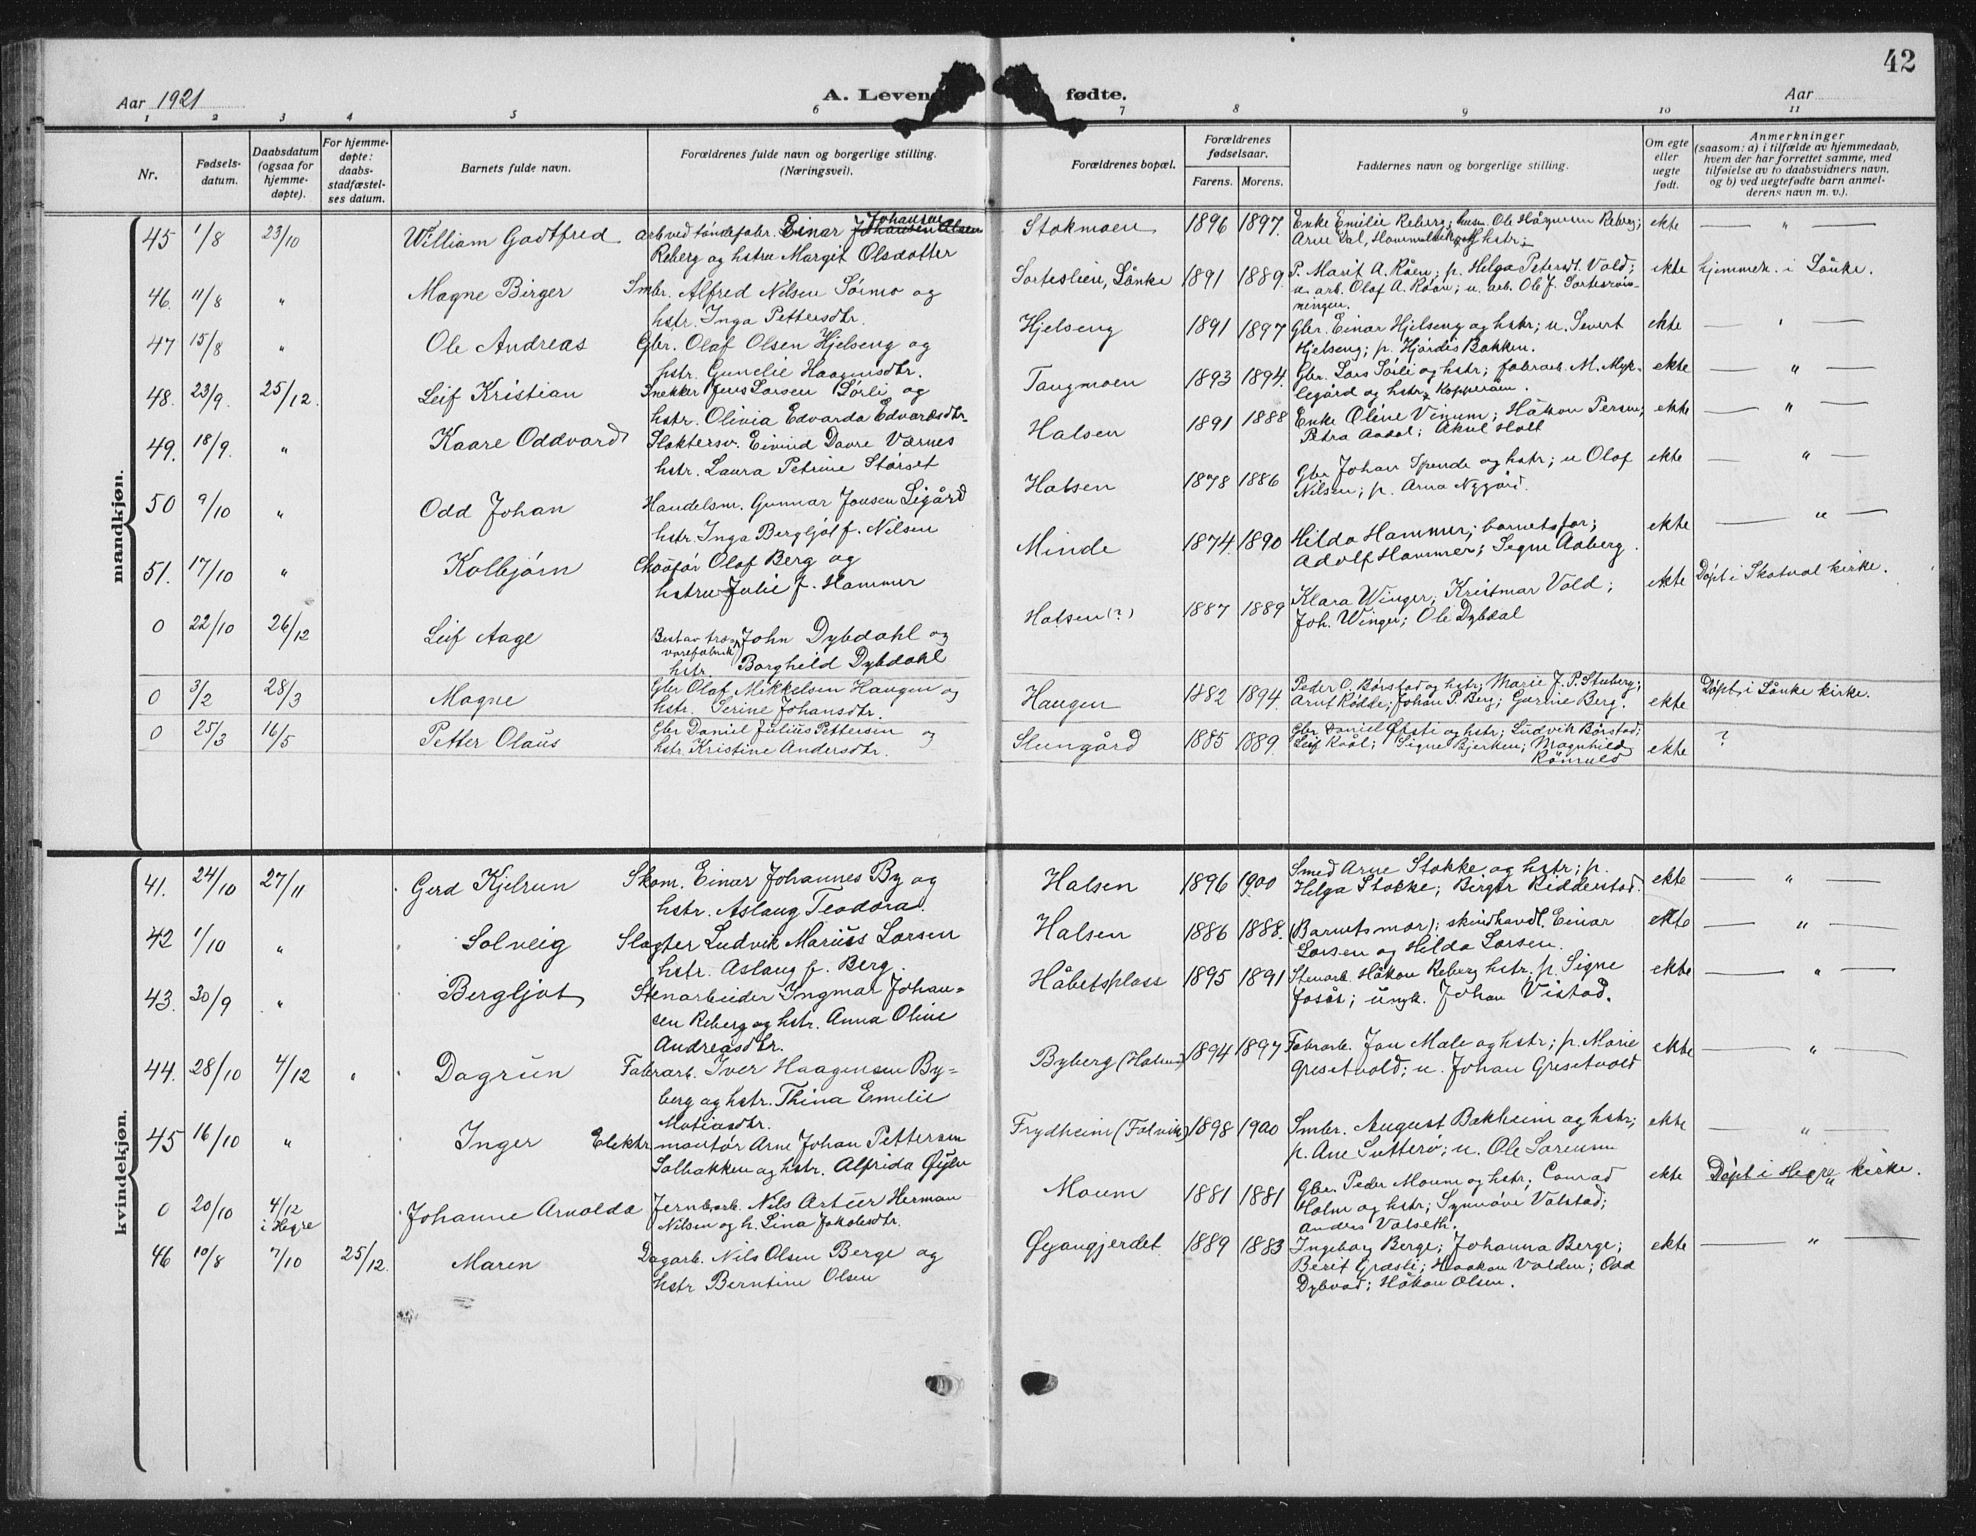 42
Aar 1921
A. Levende fødte.
Aar
1 2 3 4 5 6 7 8 9 10 11
Nr.
Fødsels-
datum.
Daabsdatum
(ogsaa for
hjemme-
døpte).
For hjemme-
døpte:
daabs-
stadfæstel-
ses datum.
Barnets fulde navn.
Forældrenes fulde navn og borgerlige stilling.
(Næringsvei).
Forældrenes bopæl.
Forældrenes
fødselsaar.
Farens. Morens.
Faddernes navn og borgerlige stilling.
Om egte
eller
uegte
født.
Anmerkninger
(saasom: a) i tilfælde av hjemmedaab,
hvem der har forrettet samme, med
tilføielse av to daabsvidners navn,
og b) ved uegtefødte barn anmel-
derens navn m. v.).
mandkjøn.
45 1/8 23/10 William Godtfred arb ved tøndefabr. Einar Johansen
Reberg og hstru Margit Olsdotter
Stokmoen 1896 1897. Enke Emilie Reberg; Ole Håganson Reberg;
Arne Dal, hstr; ekte — " —
46. 11/8 " Magne Birger Smbr. Alfred Nilsen Sørmo og
hstr. Inga Pettersdtr.
Sorteslien, Lånke 1891 1889. P. Marit A. Råen; p. Helga Petersdt. Vold;
u. arb. Olaf A. Råen; u. arb. Ole J. Sortesrøn-
ningen. ekte hjemmen. i Lånke.
47 15/8 " Ole Andreas Gbr. Olaf Olsen Hjelseng og
hstr. Gunelie Haagensdtr.
Hjelseng 1891 1897 Gbr. Einar Hjelseng og hstr; u. Severt
Hjelseng; p. Hjørdis Bakken. ekte — " —
48. 23/9. 25/12. Leif Kristian Snekker Jens Larsen Sørli og
hstr. Olivia Edvarda Edvardsdtr.
Tangmoen 1893 1894. Gbr. Lars Sørli og hstr; fabrarb. M. Myr-
legård og hstr, Kopperåen. ekte — " —
49. 18/9. " Kaare Oddvard Slaktersv. Eivind Dovre Værnes
hstr. Laura Petrine Størset
Halsen 1891 1888 Enke Oline Vinum; Håkon Persen;
Petra Aadal; Aksel Holt ekte — " —
50 9/10 " Odd Johan Handelsm. Gunnar Jonsen Ligård
hstr. Inga Bergljot f. Nilsen
Halsen 1878 1886 Gbr Johan Spende og hstr; u Olaf
Nilsen; p. Arna Nygård. ekte — " —
51. 17/10 " Kolbjørn Chaufør Olaf Berg og
hstru Julie f. Hammer
Minde 1874 1890 Hilda Hammer; barnets far;
Adolf Hammer; Segne Aaberg. ekte — " —
0 22/10 26/12 Leif Aage Bestav træ-
varefabrik John Dybdahl og
hstr. Borghild Dybdahl
Halsen (?) 1887 1889 Klara Winger; Kristmar Vold;
Joh. Winger; Ole Dybdal ekte Døpt i Skatval kirke.
0 3/2 28/3 Magne Gbr Olaf Mikkelsen Haugen og
hstr. Serine Johansdtr.
Haugen 1882 1894. Peder O. Børstad og hstr; Marie J. P. Stuberg;
Arnt Rødde; Johan P. Berg; Gurine Berg. ekte Døpt i Lånke kirke.
0 25/3 16/5 Petter Olaus Gbr Daniel Julius Pettersen og
hstr. Kristine Andersdtr.
Slungård 1885 1889. Gbr Daniel Øfsti og hstr; Ludvik Børstad;
Leif Kaal; Signe Bjerken; Magnhild
ekte ?
kvindekjøn.
41. 24/10 27/11 Gerd Kjelrun Skom. Einar Johannes By og
hstr. Aslaug Teodora.
Halsen 1896 1900 Smed Arne Stokke og hstr; p.
Helga Stokke; Birger Ridderstad. ekte — " —
42 1/10 " Solveig Slagter Ludvik Marius Larsen
hstr. Aslaug f. Berg.
Halsen 1886 1888. (Barnets mor); skindhandl. Einar
Larsen og Hilda Larsen. ekte — " —
43. 30/9 " Bergljot Stenarbeider Ingmar Johan-
sen Reberg og hstr. Anna Oline
Andreasdtr.
Håbetsplass 1895 1891 Stenarb. Håkon Reberg hstr. p. Signe
Fosås; ungk. Johan Vistad. ekte — " —
44. 28/10 4/12 " Dagrun Fabrarb. Iver Haagensen By-
berg og hstr. Thina Emelie
Matiasdtr.
Byberg (Halsen) 1894 1897 Fabrarb. Jon Male og hstr; p. Marie
Gresetvold; u. Johan Gresetvold ekte — " —
45 16/10 " Inger Elektr.
montør Arne Johan Pettersen
Solbakken og hstr. Alfrida Øyen
Frydheim (Folvik) 1898 1900 Smbr. August Bakheim og hstr;
p. Ane Sutterø; u. Ole Sorensen ekte — " —
0 20/10 4/12
i Hegre Johanne Arnolda Jernbarb. Nils Artur Herman
Nilsen og h. Lina Jakobsdtr.
Moum 1881 1881 Gbr. Peder Moum og hstr; Conrad
Holm og hstr; Synnøve Valstad;
Anders Valseth. ekte Døpt i Hegre kirke.
46 10/8 7/10 25/12. Maren Dagarb. Nils Olsen Berge og
hstr Berntine Olsen
Øyangjerdet 1889 1883 Ingeborg Berge; Johanna Berge;
Berit Græsli; Haakon Valden; Odd
Dybvad; Håkon Olsen. ekte — " —